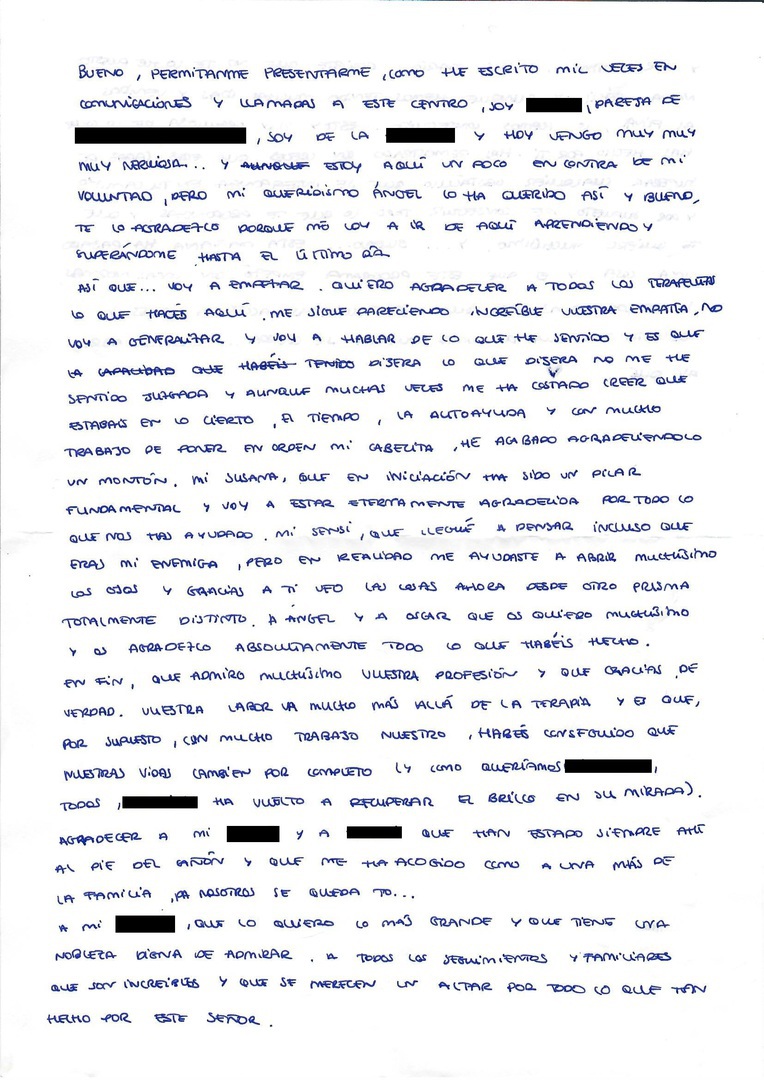 BUENO, PERMITANME PRESENTARME, COMO HE ESCRITO MIL VECES EN
COMUNICACIONES Y LLAMADAS A ESTE CENTRO, SOY , PAREJA DE
, SOY DE LA Y HOY VENGO MUY MUY
MUY NERVIOSA... Y AUNQUE ESTOY AQUÍ UN POCO EN CONTRA DE MI
VOLUNTAD, PERO MI QUERIDISMO ÁNGEL LO HA QUERIDO ASÍ Y BUENO,
TE LO AGRADEZCO PORQUE ME VOY A IR DE AQUÍ APRENDIENDO Y
SUPERÁNDOME HASTA EL ÚLTIMO DÍA
ASÍ QUE... VOY A EMPEZAR. QUIERO AGRADECER A TODOS LOS TERAPEUTAS
LO QUE HACÉS AQUÍ. ME SIGUE PARECIENDO INCREÍBLE VUESTRA EMPATÍA, NO
VOY A GENERALIZAR Y VOY A HABLAR DE LO QUE HE SENTIDO Y ES QUE
LA CAPACIDAD QUE HABÉIS TENIDO DIJERA LO QUE DIJERA NO ME HE
SENTIDO JUZGADA Y AUNQUE MUCHAS VECES ME HA COSTADO CREER QUE
ESTABAIS EN LO CIERTO, EL TIEMPO, LA AUTOAYUDA Y CON MUCHO
TRABAJO DE PONER EN ORDEN MI CABECITA, HE ACABADO AGRADECIENDOLO
UN MONTÓN. MI SUSANA, QUE EN INICIACIÓN HA SIDO UN PILAR
FUNDAMENTAL Y VOY A ESTAR ETERNAMENTE AGRADECIDA POR TODO LO
QUE NOS HAS AYUDADO. MI SENSI, QUE LLEGUÉ A PENSAR INCLUSO QUE
ERAS MI ENEMIGA, PERO EN REALIDAD ME AYUDASTE A ABRIR MUCHÍSIMO
LOS OJOS Y GRACIAS A TI VEO LAS COSAS AHORA DESDE OTRO PRISMA
TOTALMENTE DISTINTO. A ÁNGEL Y A OSCAR QUE OS QUIERO MUCHÍSIMO
Y OS AGRADEZCO ABSOLUTAMENTE TODO LO QUE HABÉIS HECHO.
EN FIN, QUE ADMIRO MUCHÍSIMO VUESTRA PROFESIÓN Y QUE GRACIAS DE
VERDAD. VUESTRA LABOR VA MUCHO MÁS ALLÁ DE LA TERAPIA Y ES QUE,
POR SUPUESTO, CON MUCHO TRABAJO NUESTRO, HABÉIS CONSEGUIDO QUE
NUESTRAS VIDAS CAMBIEN POR COMPLETO (Y COMO QUERÍAMOS ,
TODOS, HA VUELTO A RECUPERAR EL BRILLO EN SU MIRADA).
AGRADECER A MI Y A QUE HAN ESTADO SIEMPRE AHÍ
AL PIE DEL CAÑÓN Y QUE ME HA ACOGIDO COMO A UNA MÁS DE
LA FAMILIA, PA NOSOTROS SE QUEDA TO...
A MI , QUE LO QUIERO LO MÁS GRANDE Y QUE TIENE UNA
NOBLEZA DIGNA DE ADMIRAR. A TODOS LOS SEGUIMIENTOS Y FAMILIARES
QUE SON INCREÍBLES Y QUE SE MERECEN UN ALTAR POR TODO LO QUE HAN
HECHO POR ESTE SEÑOR.